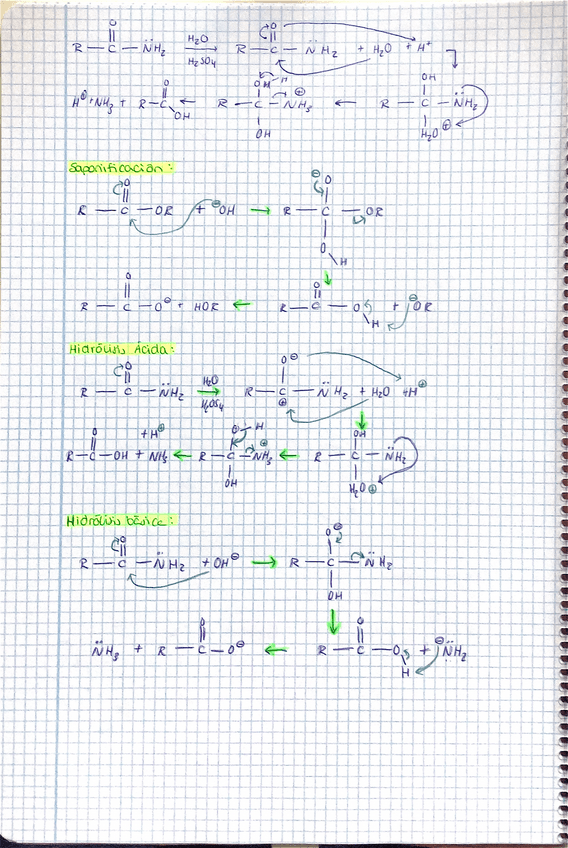 O O
R — C — N̈H₂ H₂O H₂SO₄ R — C — N̈H₂ + H₂O + H⁺
OH H OH
H⊕ + NH₃ + R — C O OH R — C — NH₃ ⊕ R — C — N̈H₂
OH H₂O ⊕
Saponificación:
O ⊖ O
R — C — OR + ⊖OH R — C — OR
O H
O O
R — C — O⊖ + HOR R — C — O H + ⊖OR
Hidrólisis Ácida:
O O⊖
R — C — N̈H₂ H₂O H₂SO₄ R — C ⊕ — N̈H₂ + H₂O + H⊕
O + H⊕ O — H OH
R — C — OH + NH₃ R — C — NH₃ ⊕ R — C — N̈H₂
OH H₂O ⊕
Hidrólisis básica:
O O⊖
R — C — N̈H₂ + OH⊖ R — C — N̈H₂
OH
O O
N̈H₃ + R — C — O⊖ R — C — O H + ⊖N̈H₂